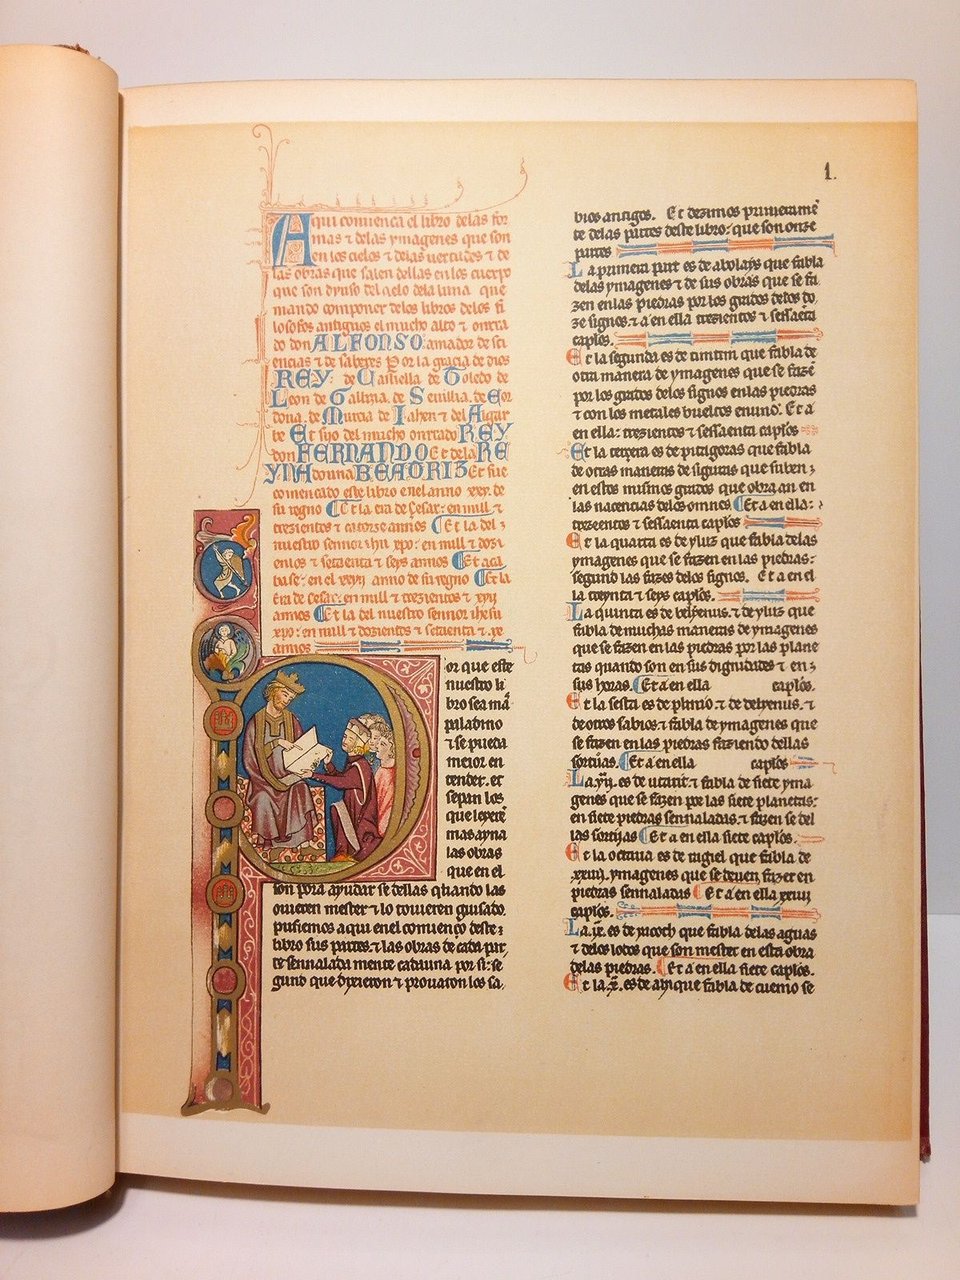 1.
Aqui comiença el libro delas for
mas ⁊ delas ymagenes que son
en los cielos ⁊ delas uertudes ⁊ de
las obras que salen dellas en los cuerpos
que son dyuso del cielo dela luna que
mando componer delos libros delos fi
losofos antiguos el mucho alto ⁊ onrra
do don ALFONSO amador de sci
encias ⁊ de saberes Por la gracia de dios
REY de Castiella de Toledo de
Leon de Gallizia de Seuillia de Cor
doua de Murcia de Iahen ⁊ del Algar
be Et fijo del mucho onrrado REY
don FERNANDO Et dela RE
YNA douna BEATRIZ Et fue
començado este libro en el anno xxv. de
su regno Et la era de Cesar: en mill ⁊
trezientos ⁊ catorze annos Et la del
nuestro sennor ihu xpo: en mill ⁊ dozi
entos ⁊ setaenta ⁊ seys annos Et aca
base: en el xxvij anno de su regno Et la
Era de Cesar: en mill ⁊ trezientos ⁊ xvij
annos Et la del nuestro sennor ihesu
xpo: en mill ⁊ dozientos ⁊ setaenta ⁊ .ix.
annos
Por que este
nuestro li
bro sea mas
paladino
⁊ se pueda
meior en
tender. et
sepan los
que leyere
mas ayna
las obras
que en el
son pora ayudar se dellas quando las
ouieren mester ⁊ lo touieren guisado.
pusiemos aqui en el comienço deste
libro sus partes. ⁊ las obras de cada par
te sennalada mente cada una por si: se
gund que dixieron ⁊ prouaron los sa
bios antigos. Et dezimos primeramẽ
te delas partes deste libro: que son onze
partes
La primera part es de abolays que fabla
delas ymagenes ⁊ de sus obras que se fa
zen en las piedras por los grados delos do
ze signos. ⁊ a en ella trezientos ⁊ sessaenta
caplos.
Et la segunda es de timtim que fabla de
otra manera de ymagenes que se fazẽ
por los grados delos signos en las piedras
⁊ con los metales bueltos en uno. Et a
en ella: trezientos ⁊ sessaenta caplos
Et la tercera es de pitagoras que fabla
de otras maneras de figuras que suben
en estos mismos grados que obran en
las nacencias delos omnes Et a en ella:
trezientos ⁊ sessaenta caplos
Et la quarta es de yluz que fabla delas
ymagenes que se fazen en las piedras:
segund las fazes delos signos. Et a en el
la treynta ⁊ seys caplos.
La quinta es de belyenus. ⁊ de yluz que
fabla de muchas maneras de ymagenes
que se fazen en las piedras por las plane
tas quando son en sus dignidades ⁊ en
sus horas. Et a en ella caplos.
Et la sesta es de plinio ⁊ de belyenus. ⁊
de otros sabios ⁊ fabla de ymagenes que
se fazen en las piedras faziendo dellas
sortijas. Et a en ella caplos
La .vij. es de utarit: ⁊ fabla de siete yma
genes que se fazen por las siete planetas:
en siete piedras sennaladas. ⁊ fazen se del
las sortijas Et a en ella siete caplos.
Et la octaua es de ragiel que fabla de
.xxiiij. ymagenes que se deuen fazer en
piedras sennaladas Et a en ella xxiiij
caplos.
La .ix. es de yacoth que fabla delas aguas
⁊ delos lodos que son mester en esta obra
delas piedras. Et a en ella siete caplos.
Et la .x. es de aly que fabla de cuemo se